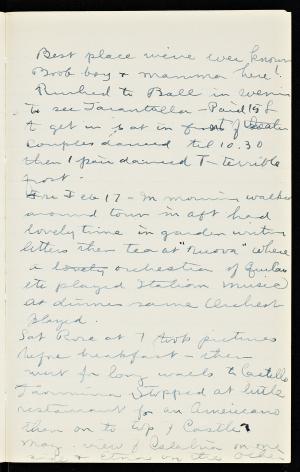 Best place we've ever known
Boob boy & mamma here!
Rushed to Ball in evening
to see Tarantella - Paid 15 L
to get in & sat in front of theater
Couples danced til 10.30
then 1 pair danced T - terrible
frost.
Fri Feb 17 - In morning walked
around town in aft had
lovely time in garden writing
letters then tea at "Nuova" where
a lovely orchestra of Guitars
etc played Italian music
At dinner same Orchest
played.
Sat Rose at 7 took pictures
before breakfast - then
went for long walk to Castello
Taormina Stopped at little
restaurant for an Americano
then on to top of Castle
Mag. view of Calabria on one
side & Etna on the other